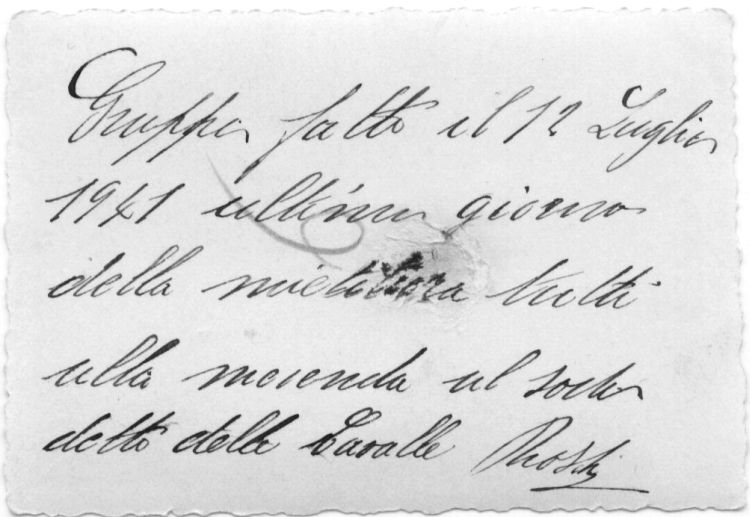 Gruppo fatto il 12 Luglio
1941 ultimo giorno
della mietitura tutti
alla merenda al sodo
detto delle Cavalle Rossi